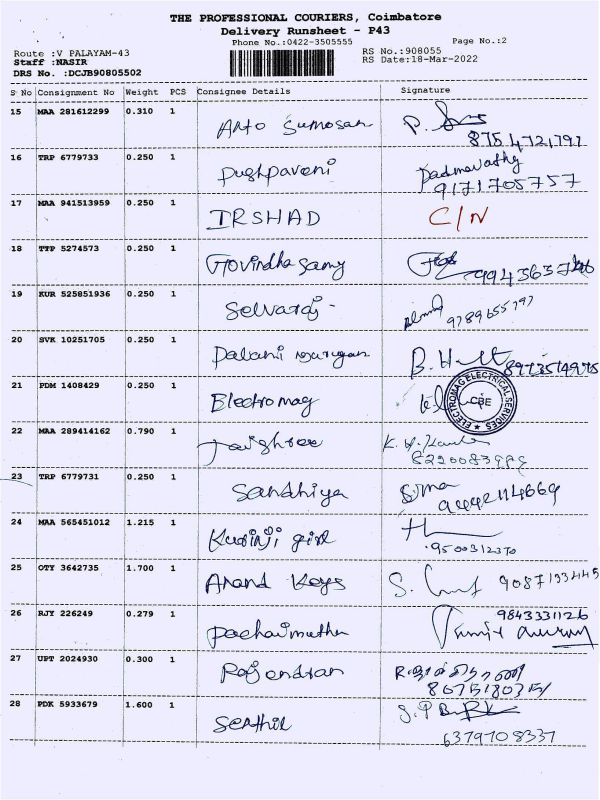 THE PROFESSIONAL COURIERS, Coimbatore
Delivery Runsheet - P43
Phone No.:0422-3505555 Page No.:2
Route :V PALAYAM-43 RS No.:908055
Staff :NASIR RS Date:18-Mar-2022
DRS No. :DCJB90805502
S No Consignment No Weight PCS Consignee Details Signature
15 MAA 281612299 0.310 1 Arto Sumosan P.
8754721797
16 TRP 6779733 0.250 1 Pushpaveni Padmavathy
9171705757
17 MAA 941513959 0.250 1 IRSHAD C/N
18 TTP 5274573 0.250 1 Govindha samy
19 KUR 525851936 0.250 1 Selvaraj
9789655797
20 SVK 10251705 0.250 1 Palani murugan B.
21 PDM 1408429 0.250 1 Electromag
ELECTROMAG ELECTRICAL SERVICES CBE
22 MAA 289414162 0.790 1 Jaishree
23 TRP 6779731 0.250 1 Sandhiya
24 MAA 565451012 1.215 1 Kurinji
9500312370
25 OTY 3642735 1.700 1 Anand Keys S. 9087133445
26 RJY 226249 0.279 1 Pachaimuthu 9843331126
27 UPT 2024930 0.300 1 Rajendran
28 PDK 5933679 1.600 1 Senthil
6379708337